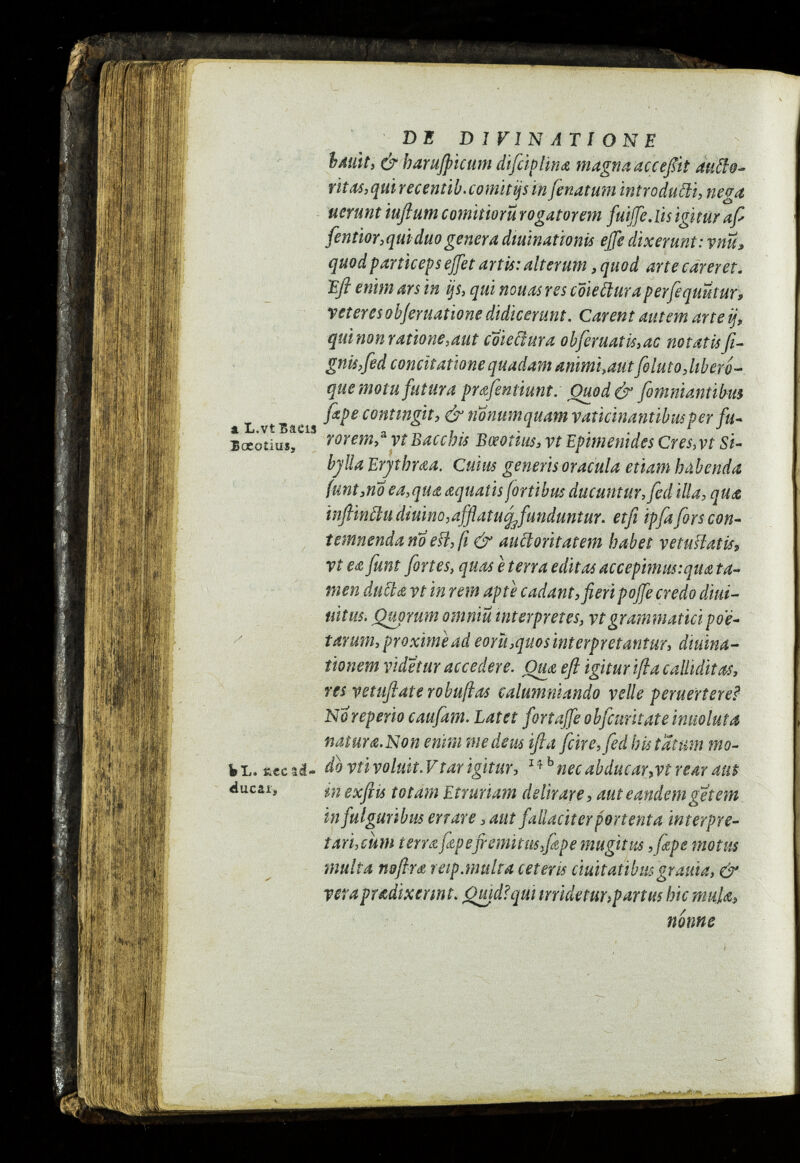 DE DIVINATIONE
bauit, & haruſpicum diſciplinæ magna acceßit aucto-
ritas, qui recentib. comitijs in ſenatum introducti, nega
uerunt iuſtum comitiorū rogatorem fuiſſe. Iis igitur aſ-
ſentior, qui duo genera diuinationis eſſe dixerunt: vnū,
quod particeps eſſet artis: alterum, quod arte careret.
Eſt enim ars in ijs, qui nouas res cōiectura perſequūtur,
veteres obſeruatione didicerunt. Carent autem arte ij,
qui non ratione, aut cōiectura obſeruatis, ac notatis ſi-
gnis, ſed concitatione quadam animi, aut ſoluto, liberó-
que motu futura præſentiunt. Quod & ſomniantibus
ſæpe contingit, & nōnumquam vaticinantibus per fu-
a L. vt Bacis
Bœotius,
rorem,ᵃ vt Bacchis Bœotius, vt Epimenides Cres, vt Si-
bylla Erythræa. Cuius generis oracula etiam habenda
ſunt, nō ea, quæ æquatis ſortibus ducuntur, ſed illa, quæ
inſtinctu diuino, afflatuq; funduntur. etſi ipſa ſors con-
temnenda nō eſt, ſi & auctoritatem habet vetuſtatis,
vt eæ ſunt ſortes, quas è terra editas accepimus: quæ ta-
men ductæ vt in rem aptè cadant, fieri poſſe credo diui-
nitus. Quorum omniū interpretes, vt grammatici poë-
tarum, proximè ad eorū, quos interpretantur, diuina-
tionem vidētur accedere. Quæ eſt igitur iſta calliditas,
res vetuſtate robuſtas calumniando velle peruertere?
Nō reperio cauſam. Latet fortaſſe obſcuritate inuoluta
naturæ. Non enim me deus iſta ſcire, ſed his tātum mo-
b L. nec ad-
ducar,
dò vti voluit. Vtar igitur, ¹⁺ ᵇ nec abducar, vt rear aut
in exſtis totam Etruriam delirare, aut eandem gētem
in fulguribus errare, aut fallaciter portenta interpre-
tari, cùm terræ ſæpe fremitus, ſæpe mugitus, ſæpe motus
multa noſtræ reip. multa ceteris ciuitatibus grauia, &
vera prædixerint. Quid? qui irridetur, partus hic mulæ,
nónne